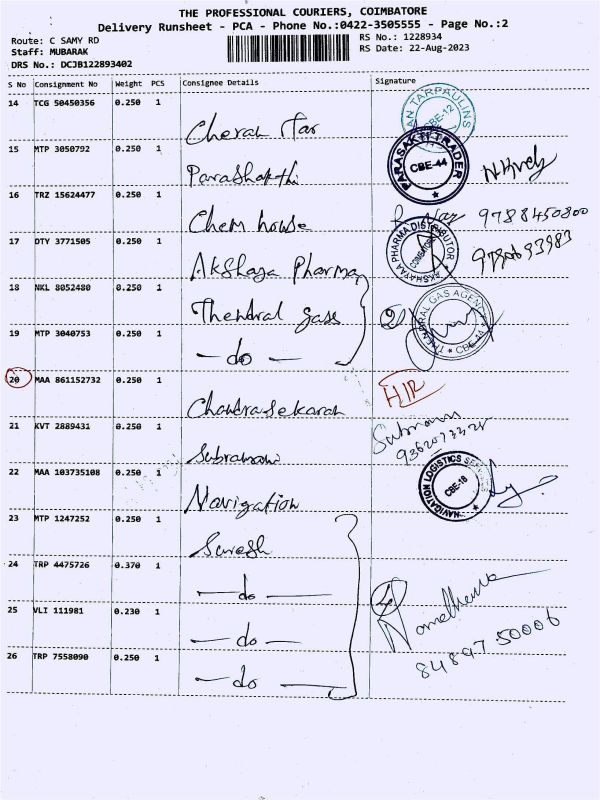 THE PROFESSIONAL COURIERS, COIMBATORE
Delivery Runsheet - PCA - Phone No.:0422-3505555 - Page No.:2
Route: C SAMY RD
RS No.: 1228934
Staff: MUBARAK
RS Date: 22-Aug-2023
DRS No.: DCJB122893402
S No Consignment No Weight PCS Consignee Details Signature
14 TCG 50450356 0.250 1 Cheran Tar
AN TARPAULINS CBE-12
15 MTP 3050792 0.250 1 Parashakthi
PARASAKTI TRADER CBE-44
16 TRZ 15624477 0.250 1 Chem house 9788450800
17 DTY 3771505 0.250 1 Akshaya Pharma
AKSHAYAA PHARMA DISTRIBUTOR COIMBATORE
18 NKL 8052480 0.250 1 Thendral gass
(2) THENDRAL GAS AGENC CBE
19 MTP 3040753 0.250 1 - do -
20 MAA 861152732 0.250 1 Chandrasekaran
21 KVT 2889431 0.250 1 Subramani
22 MAA 103735108 0.250 1 Navigation
NAVIGATION LOGISTICS SERVICES CBE-18
23 MTP 1247252 0.250 1 Suresh
24 TRP 4475726 0.370 1 - do -
25 VLI 111981 0.230 1 - do -
(4)
84897 50006
26 TRP 7558090 0.250 1 - do -